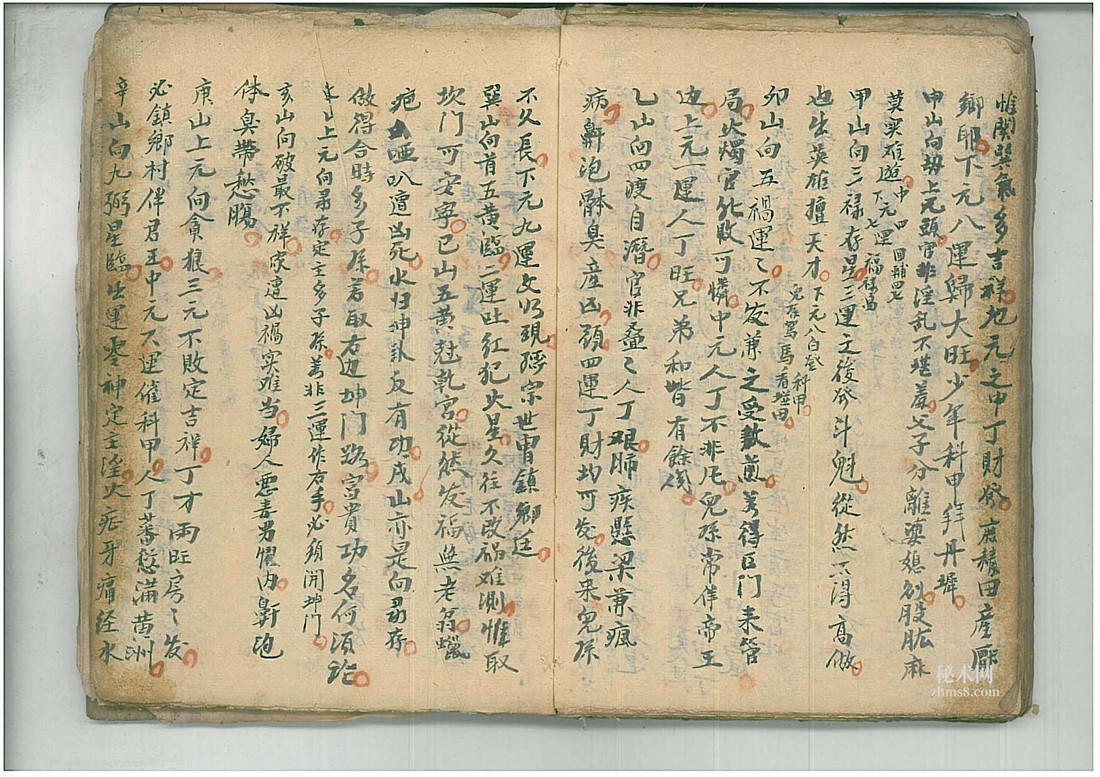 惟関巽氣多吉祥地元之中丁財發廣積田產厫
鄉耶下元八運歸大旺少年科甲拜丹墀
申山向劫上元頭官非淫乱不堪羞父子分離婆媳刮股肱麻
莫実难逰中四囬輔四七
下元七運福祿昌
甲山向三禄存星三運之後發斗魁從然不得高做
也生英雄擅天才下元八白登科甲
兒孫駕馬看塋田
卯山向五禍運々不發兼之受歎煎若得巨门来管
局火燭官非敗可憐中元人丁不非凡兒孫常伴帝王
边上元一運人丁旺兄弟和皆有餘
乙山向四渡自潛官非叠々人丁艰肺疾懸梁兼瘋
病鼻泡骵臭產凶頭四運丁財均可發後来兒孫
不久長下元九運文炤現孫宗世冑鎮鄉廷
巽山向首五黃臨二運吐红犯火星久住不改祸难測惟取
坎门可安寧巳山五黃冠乾宮從然发福無老翁蠟
疤哑叭遭凶死水归坤卦反有功戌山亦是向尋存
做得合時多子孫若取右边坤门路富貴功名何須论
上元向尋存定主多子孫若非三運作右手必須開坤门
亥山向破最不祥家遭凶禍实难当婦人悪毒男惧内鼻泡
体臭帶愁腸
庚山上元向貪狼三元不敗定吉祥丁才両旺房々发
必鎮鄉村伴君王中元六運催科甲人丁蕃愆满黄洲
辛山向九弼星臨出運零神定主淫火症牙痛経水
秘术网
zhms8.com